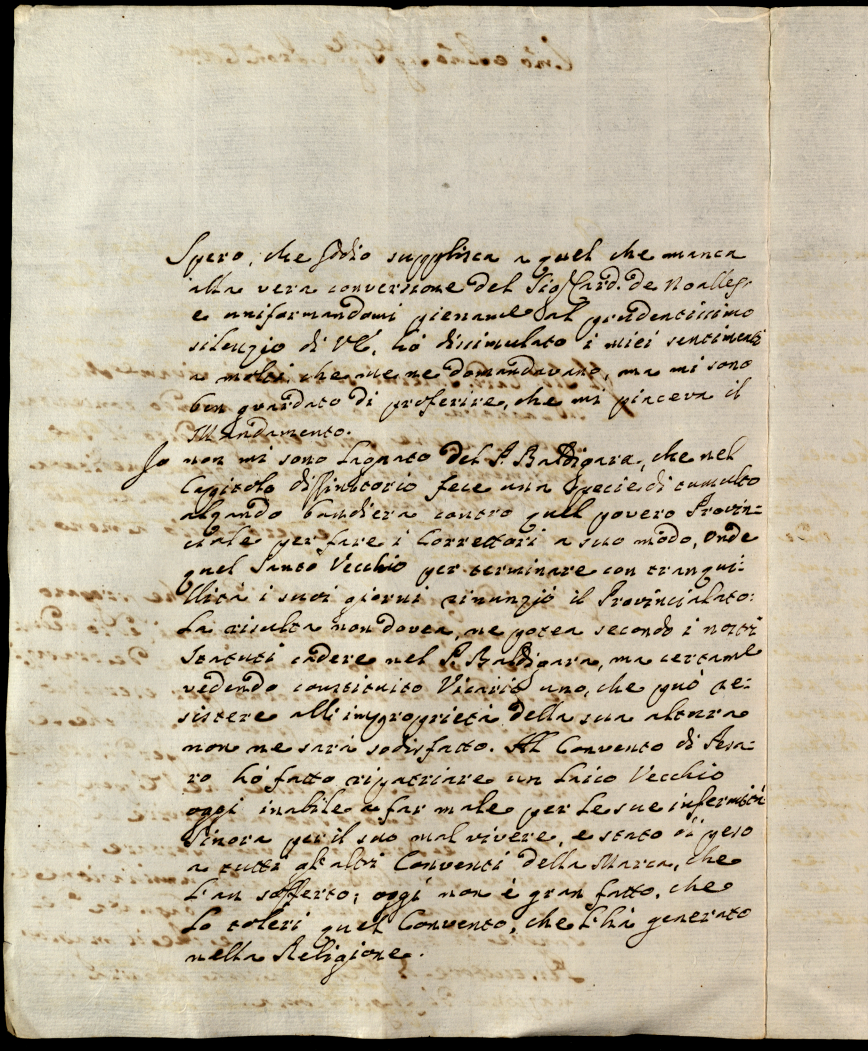 Spero, che Iddio supplisca a quel che manca
alla vera conversione del Sig. Card. de Noalles,
e uniformandomi piename al prudentissimo
silenzio di VE, hò dissimulato i miei sentimenti
a molti, che me ne domandavano, ma mi sono
ben guardato di proferire, che mi piaceva il
Mandamento.
Io non mi sono lagnato del P. Baldigara, che nel
Capitolo diffinitorio fece una specie di tumulto
alzando bandiera contro quel povero Provin:
ciale per fare i Correttori a suo modo, onde
quel Santo Vecchio per terminare con tranqui:
llità i suoi giorni rinunziò il Provincialato:
La risulta non dovea, ne potea secondo i nostri
Statuti cadere nel P. Baldigara, ma certame
vedendo constituito Vicario uno, che può re:
sistere all'improprietà della sua alterra
non ne sarà sodisfatto. Al Convento di Pesa:
ro hò fatto ripatriare un Laico Vecchio
oggi inabile a far male per le sue infermità
Sinora per il suo mal vivere, e stato di peso
a tutti gl'altri Conventi della Marca, che
l'an sofferto; oggi non è gran fatto, che
lo toleri quel Convento, che l'hà generato
nella Religione.